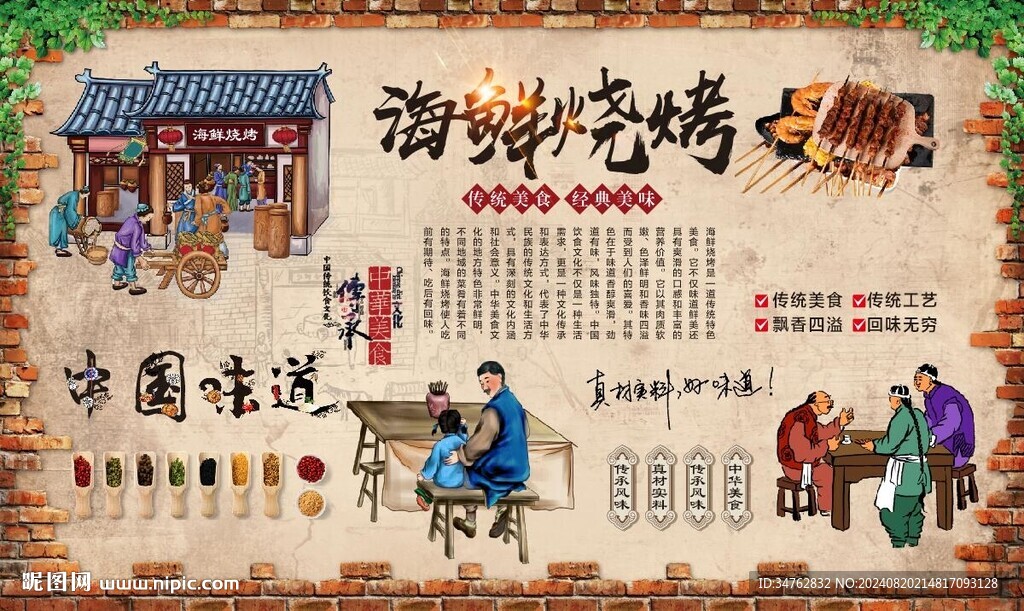 海鲜烧烤
海鲜烧烤
传统美食 经典美味
海鲜烧烤是一道传统特色
美食。它不仅味道鲜美还
具有爽滑的口感和丰富的
营养价值。它以其肉质软
嫩、色泽鲜明和香味四溢
而受到人们的喜爱。其特
色在于味道香醇爽滑，劲
道有味，风味独特。中国
饮食文化不仅是一种生活
需求，更是一种文化传承
和表达方式，代表了中华
民族的传统文化和生活方
式，具有深刻的文化内涵
和社会意义。中华美食文
化的地方特色非常鲜明，
不同地域的菜肴有着不同
的特点。海鲜烧烤使人吃
前有期待、吃后有回味。
中国传统饮食文化
传承
中華美食
文化
传统美食
传统工艺
飘香四溢
回味无穷
中国味道
真材实料,好味道!
传承风味
真材实料
传承风味
中华美食
昵图网 www.nipic.com
ID:34762832 NO:20240820214817093128